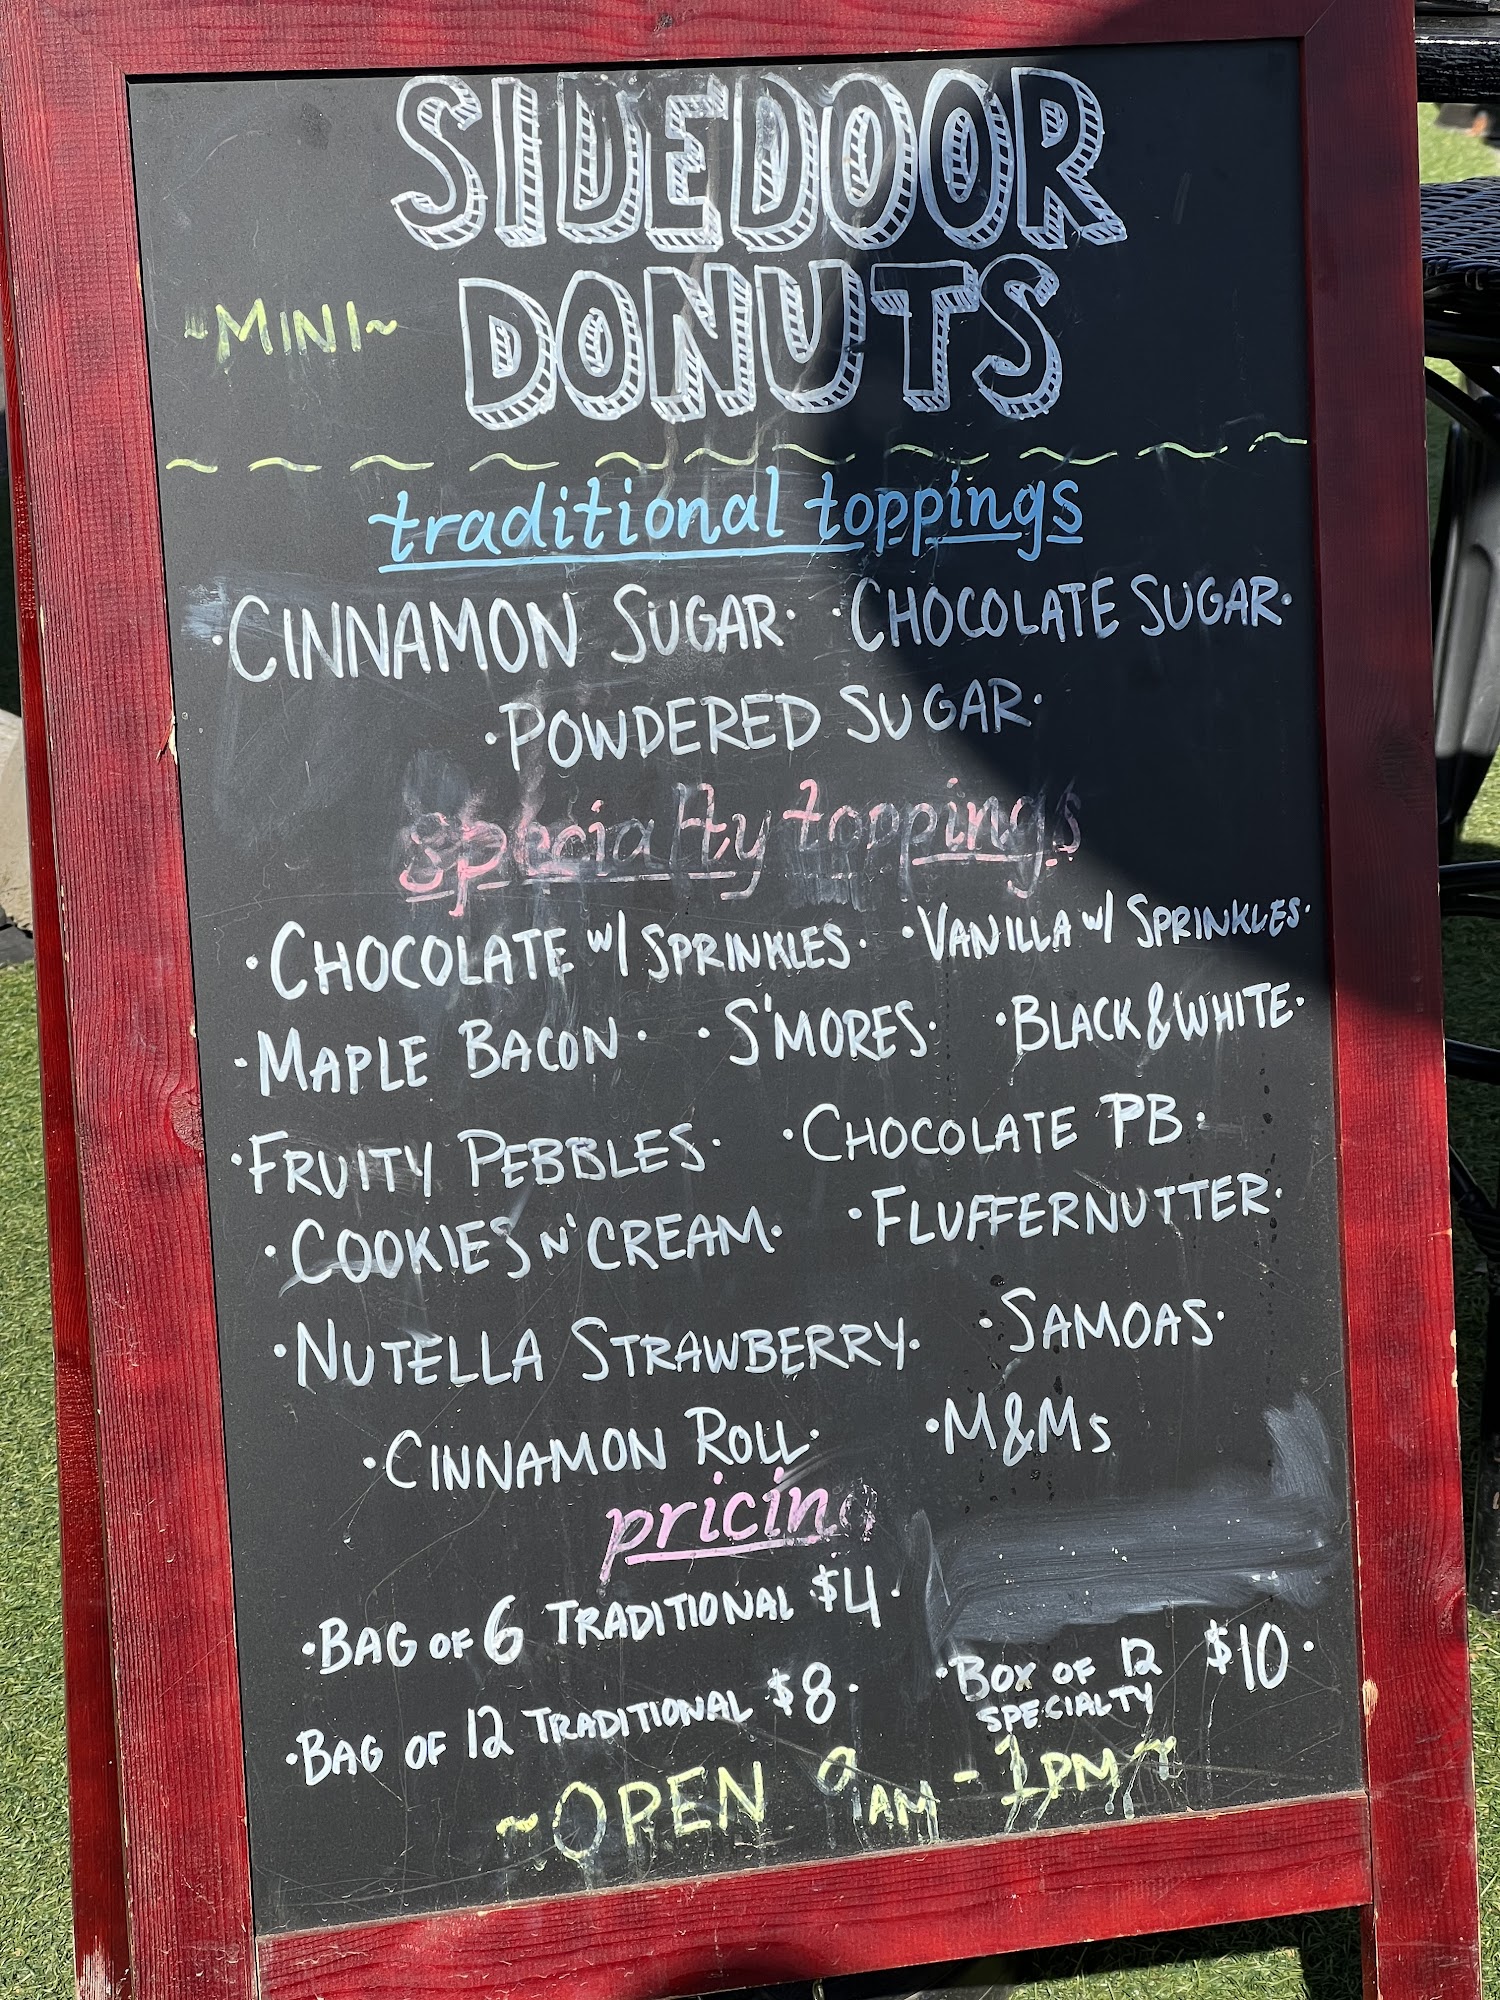 SIDEDOOR
~MINI~ DONUTS
traditional toppings
·CINNAMON SUGAR· ·CHOCOLATE SUGAR·
·POWDERED SUGAR·
specialty toppings
·CHOCOLATE w/ SPRINKLES· ·VANILLA w/ SPRINKLES·
·MAPLE BACON· ·S'MORES· ·BLACK&WHITE·
·FRUITY PEBBLES· ·CHOCOLATE PB·
·COOKIES N' CREAM· ·FLUFFERNUTTER·
·NUTELLA STRAWBERRY· ·SAMOAS·
·CINNAMON ROLL· ·M&Ms
pricing
·BAG OF 6 TRADITIONAL $4·
·BAG OF 12 TRADITIONAL $8· ·BOX OF 12 $10·
SPECIALTY
~OPEN 9AM - 1PM~